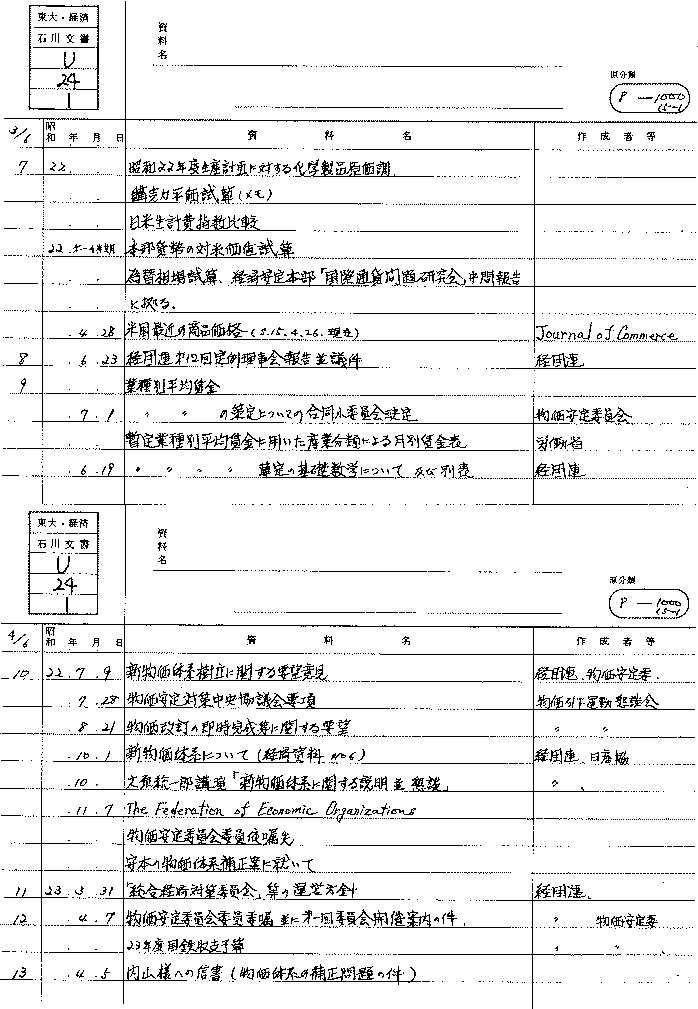 東大・経済
石川文書
U
24
1
資料名
原分類
P — 1000
15-1
3/6
昭和 年 月 日 資料名 作成者等
7 22. 昭和22年度生産計画に対する化学製品原価調
銑克力平価試算(メモ)
日米生計費指数比較
本邦貨幣の対米価値試算
為替相場試算、経済安定本部「国際通貨問題研究会」中間報告
に拠る。
4 28 米国最近の商品価格 Journal of Commerce
8 6 23 経団連才12回定例理事会報告並議件 経団連
9 業種別平均賃金
7 1 〃 〃 の策定についての合同小委員会決定 物価安定委員会
暫定業種別平均賃金に用いた産業分類による月別賃金表 労働省
6 19 〃 〃 〃 〃 算定の基礎数学について 及び別表 経団連
東大・経済
石川文書
U
24
1
資料名
原分類
P — 1000
15-1
4/6
昭和 年 月 日 資料名 作成者等
10 22 7 9 新物価体系樹立に関する要望意見 経団連、物価安定委.
7 28 物価安定対策中央協議会要項 物価引下運動懇談会
8 21 物価改訂の即時完成等に関する要望 〃 〃
10 1 新物価体系について(経済資料 No6) 経団連、日産協
10 統一郎講演「新物価体系に関する説明並懇談」 〃
11 7 The Federation of Economic Organizations
物価安定委員会委員依嘱先
安本の物価体系補正案に就いて
11 23 3 31 「総合経済対策委員会」等の運営方針 経団連.
12 4 7 物価安定委員会委員委嘱並に才一回委員会開催案内の件. 〃 物価安定委
23年度国鉄収支予算 〃 〃
13 4 5 内山様への信書(物価体系の補正問題の件)